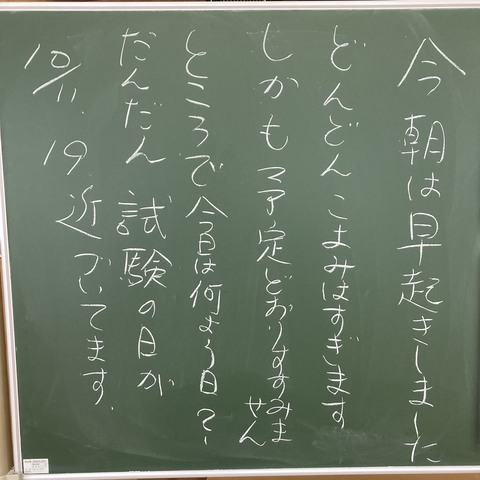 今朝は早起きしました
どんどんこまみはすぎます
しかも予定どおりすすみません
ところで今日は何よう日？
だんだん試験の日が
近づいてます.
10/11. 19